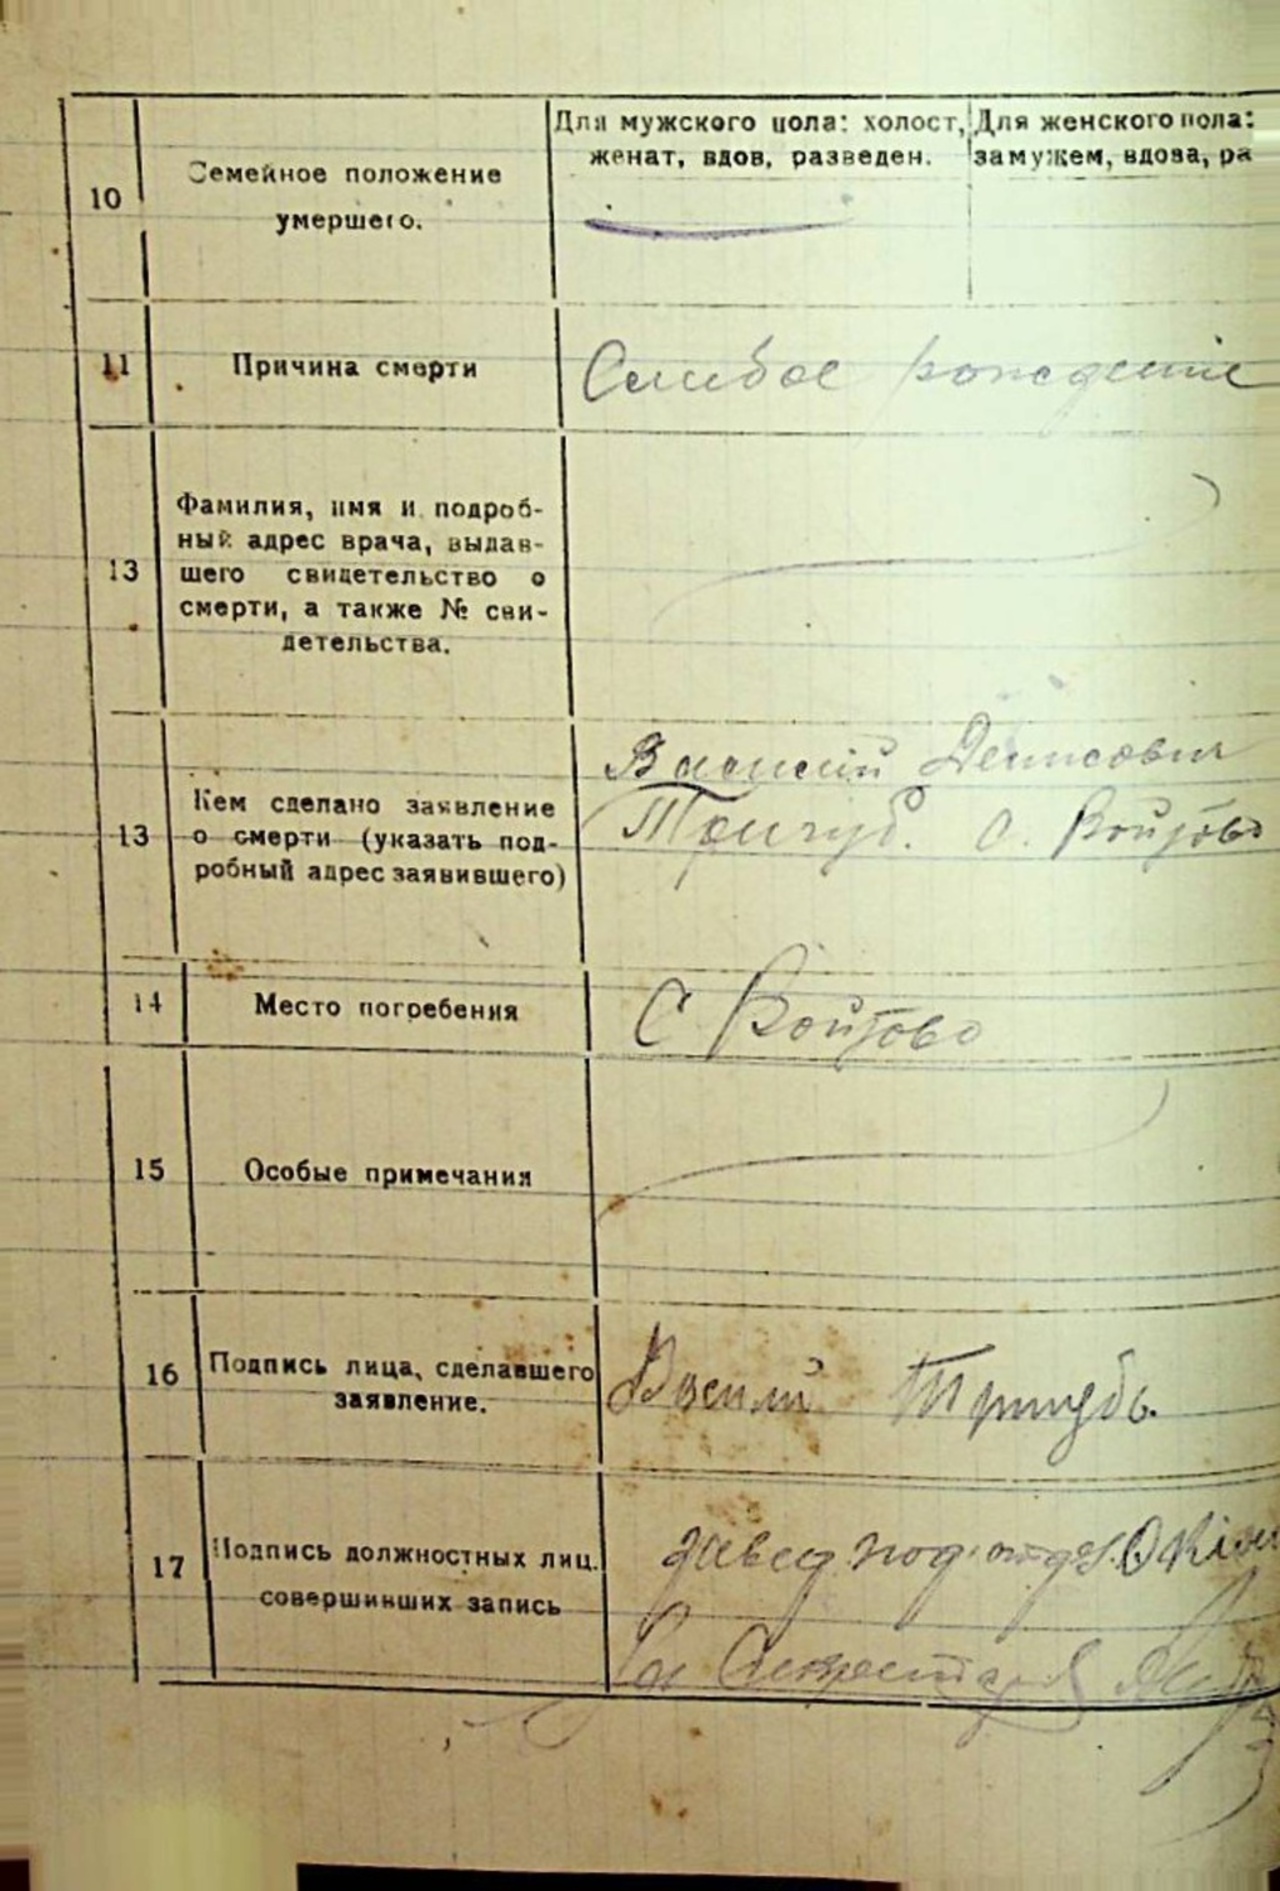 10
Семейное положение
умершего.
Для мужского пола: холост,
женат, вдов, разведен.
Для женского пола:
замужем, вдова, ра
11
Причина смерти
Слабое рождение
13
Фамилия, имя и подроб-
ный адрес врача, выдав-
шего свидетельство о
смерти, а также № сви-
детельства.
13
Кем сделано заявление
о смерти (указать под-
робный адрес заявившего)
Василій Денисович
Тригуб. С. Войтово
14
Место погребения
С Войтово
15
Особые примечания
16
Подпись лица, сделавшего
заявление.
Василий Тригубъ.
17
Подпись должностных лиц.
совершивших запись
Завед. под. отд.
Секретаря